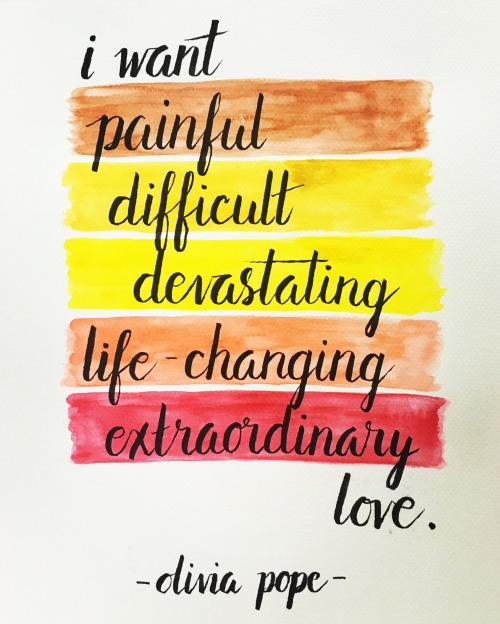 i want
painful
difficult
devastating
life-changing
extraordinary
love.
-olivia pope-